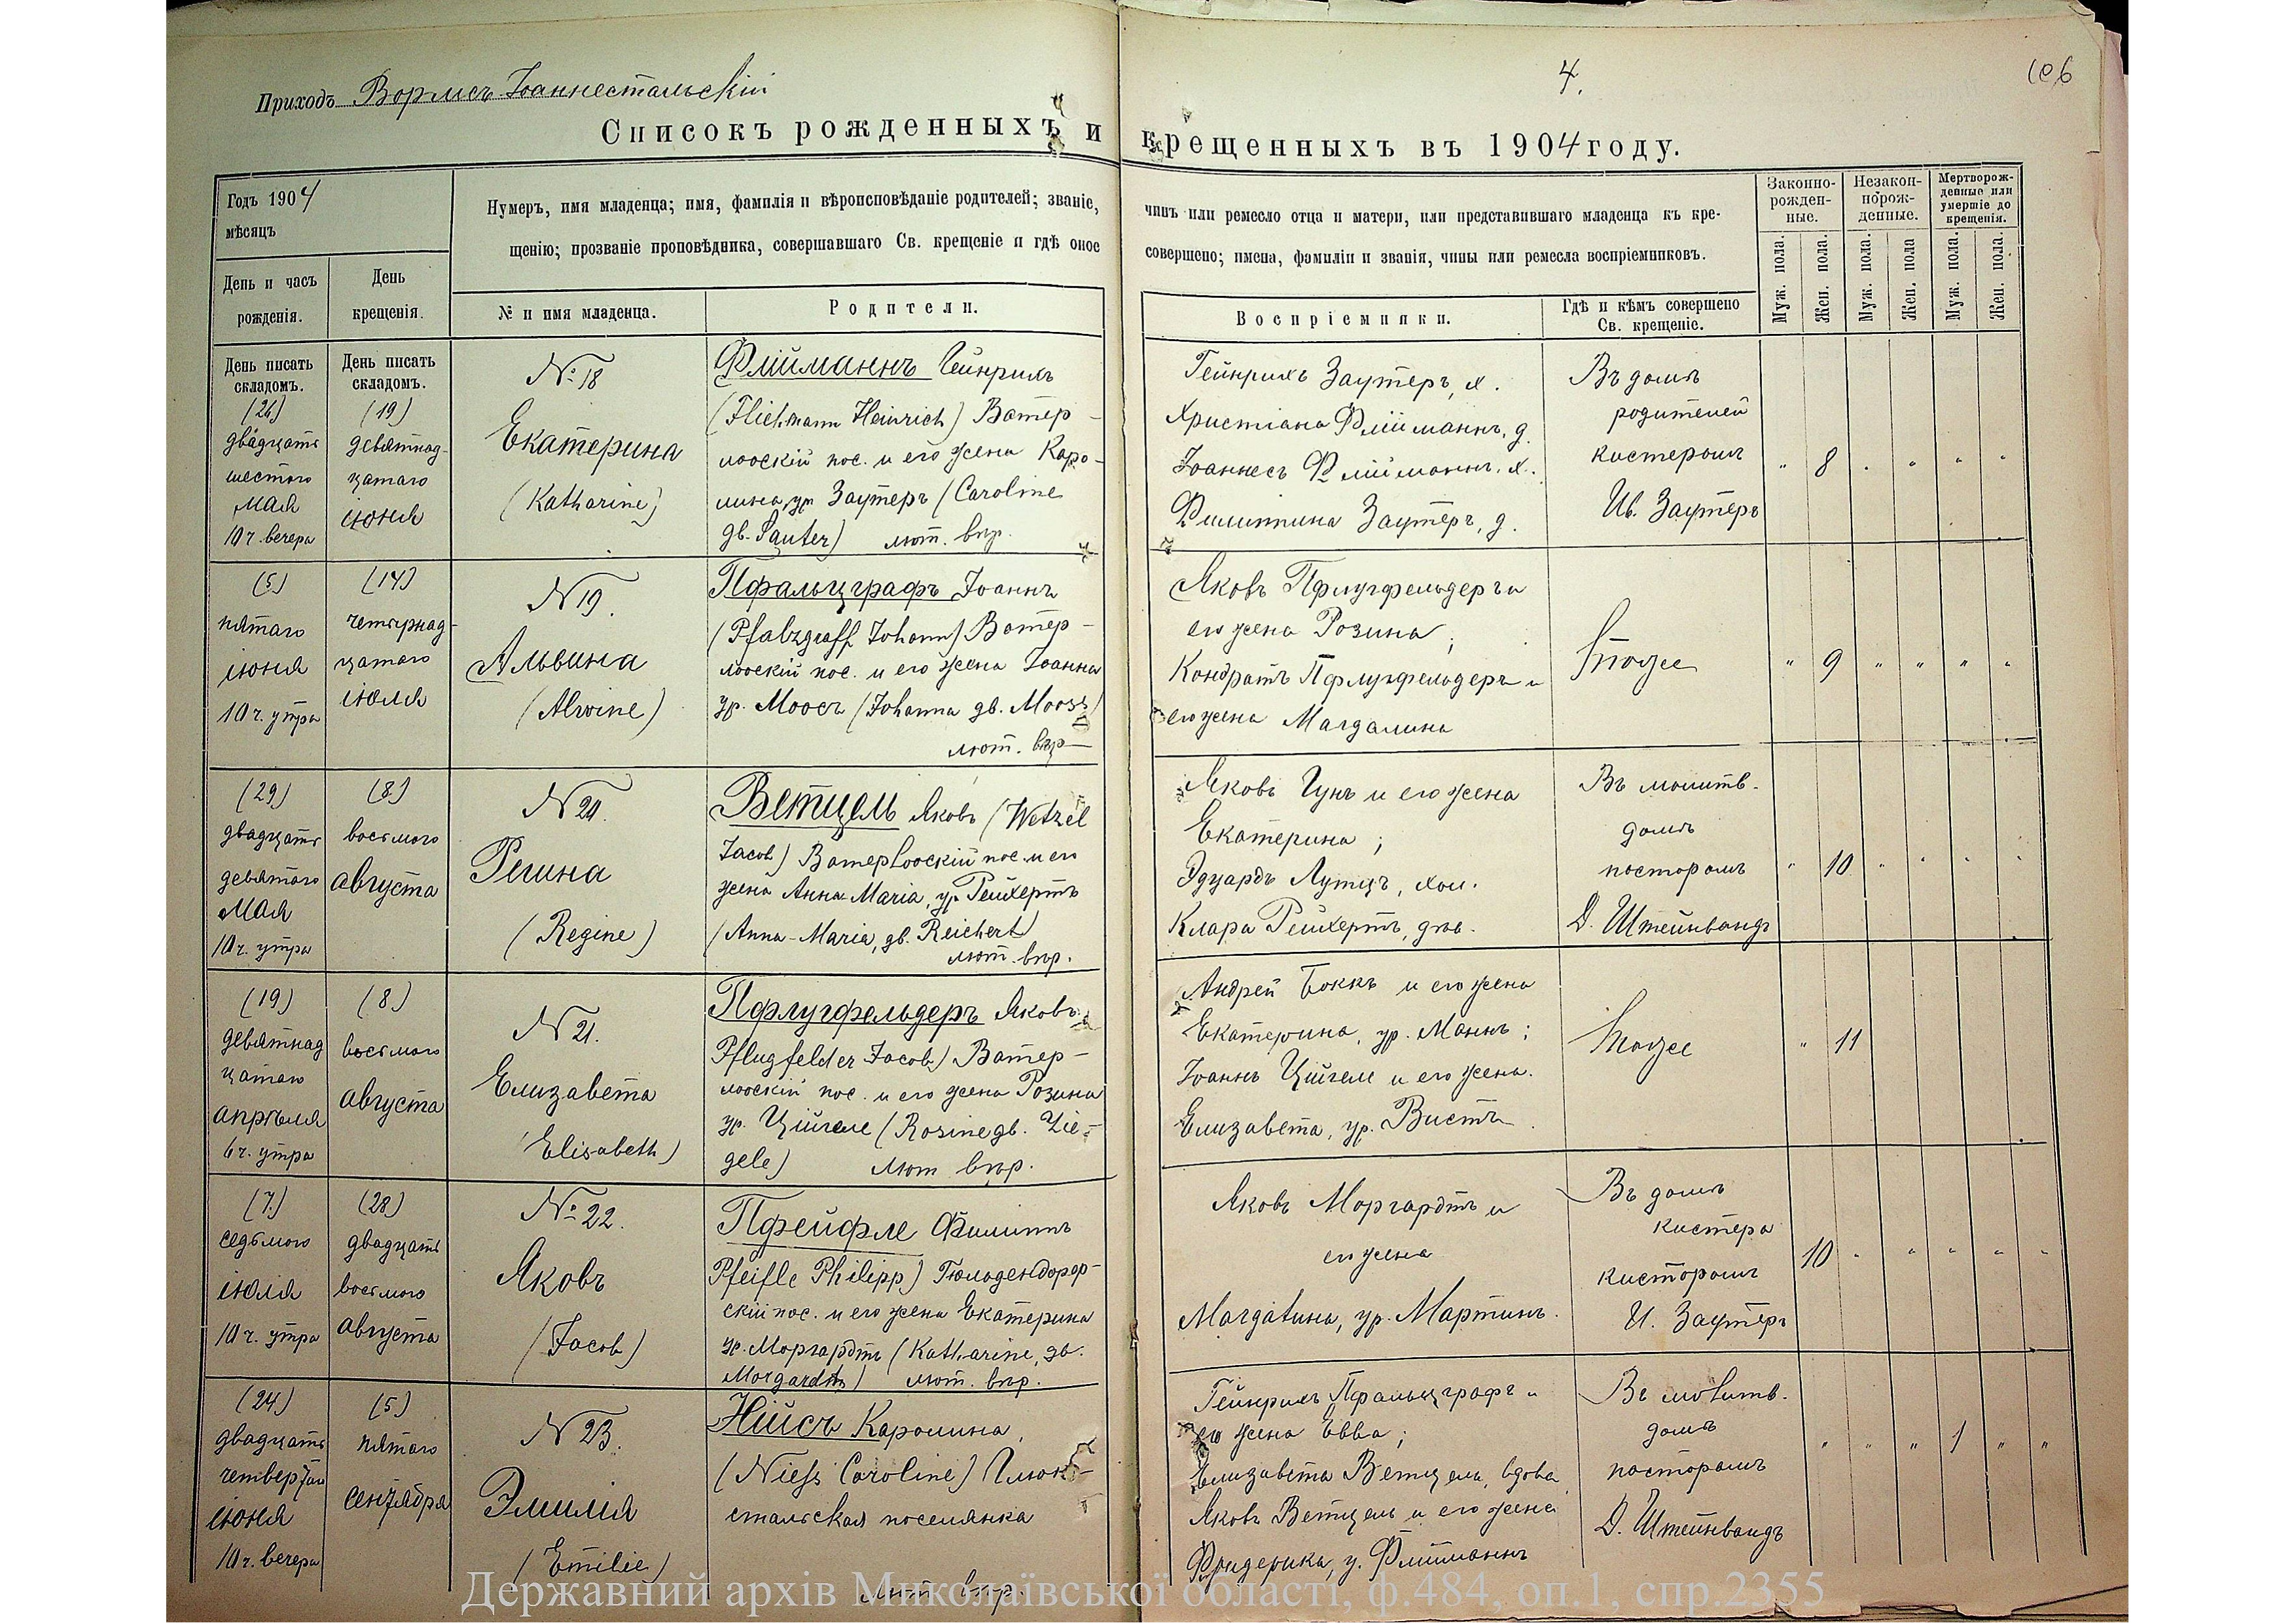 Приходъ Вормсъ Іоаннестальскій
4.
106
Списокъ рожденныхъ и крещенныхъ въ 1904 году.
Годъ 1904
мѣсяцъ
День и часъ
рожденія.
День
крещенія.
Нумеръ, имя младенца; имя, фамилія и вѣроисповѣданіе родителей; званіе, чинъ или ремесло отца и матери, или представившаго младенца къ кре-
щенію; прозваніе проповѣдника, совершавшаго Св. крещеніе и гдѣ оное совершено; имена, фамиліи и званія, чины или ремесла воспріемниковъ.
№ и имя младенца.
Родители.
Воспріемники.
Гдѣ и кѣмъ совершено
Св. крещеніе.
Законно-
рожден-
ные.
Незакон-
норож-
денные.
Мертворож-
денные или
умершіе до
крещенія.
Муж. пола.
Жен. пола.
Муж. пола.
Жен. пола
Муж. пола.
Жен. пола.
День писать
складомъ.
День писать
складомъ.
(26)
двадцать
шестого
мая
10 ч. вечера
(19)
девятнад-
цатаго
іюня
№ 18
Екатерина
(Katharine)
Флійманнъ Гейнрихъ
(Fliehmann Heinrich) Ватер-
лооскій пос. и его жена Каро-
лина, ур. Заутеръ (Caroline
gb. Sauter) лют. вѣр.
Гейнрихъ Заутеръ, х.
Христіана Флійманнъ, д.
Іоаннесъ Флійманнъ, х.
Филиппина Заутеръ, д.
Въ домѣ
родителей
кистеромъ
Ив. Заутеръ
" 8 " " " "
(5)
пятаго
іюня
10 ч. утра
(14)
четырнад-
цатаго
іюля
N 19.
Альвина
(Alwine)
Пфальцграфъ Іоаннъ
(Pfalzgraff Johann) Ватер-
лооскій пос. и его жена Іоанна
ур. Моосъ (Johanna gb. Mooss)
лют. вѣр
Яковъ Пфлугфельдеръ и
его жена Розина;
Кондратъ Пфлугфельдеръ и
его жена Магдалина
Тоже
" 9 " " " "
(29)
двадцать
девятаго
мая
10 ч. утра
(8)
восьмого
августа
N 20.
Регина
(Regine)
Ветцель Яковъ (Wetzel
Jacob) Ватерлооскій пос. и его
жена Анна-Maria, ур. Рейхертъ
(Anna-Maria, gb. Reichert)
лют. вѣр.
Яковъ Гунъ и его жена
Екатерина;
Эдуардъ Лутцъ, хол.
Клара Рейхертъ, дѣв.
Въ молитв.
домѣ
пасторомъ
Д. Штейнвандъ
" 10 " " " "
(19)
девятнад
цатаго
апрѣля
6 ч. утра
(8)
восьмого
августа
N 21.
Елизавета
(Elisabeth)
Пфлугфельдеръ Яковъ
Pflugfelder Jacob) Ватер-
лооскій пос. и его жена Розина
ур. Ційгеле (Rosine gb. Zie-
gele) лют вѣр.
Андрей Боккъ и его жена
Екатерина, ур. Маннъ;
Іоаннъ Ційгеле и его жена.
Елизавета, ур. Вистъ
Тоже
" 11
(7)
седьмого
іюля
10 ч. утра
(28)
двадцать
восьмого
августа
№ 22.
Яковъ
(Jacob)
Пфейфле Филиппъ
Pfeifle Philipp) Гюльдендорф-
скій пос. и его жена Екатерина
ур. Моргардтъ (Katharine, gb.
Morgardth) лют. вѣр.
Яковъ Моргардтъ и
его жена
Магдалина, ур. Мартинъ.
Въ домѣ
кистера
кистеромъ
И. Заутеръ
10 " " " " "
(24)
двадцать
четвертаго
іюня
10 ч. вечера
(5)
пятаго
сентября
N 23.
Эмилія
(Emilie)
Нійсъ Каролина,
(Niess Caroline) Глюкс-
тальская поселянка
лют. вѣр.
Гейнрихъ Пфальцграфъ и
его жена Евва;
Елизавета Ветцель, вдова
Яковъ Ветцель и его жена
Фридерика, у. Флійманнъ
Въ молитв.
домѣ
пасторомъ
Д. Штейнвандъ
" " " 1 " "
Державний архів Миколаївської області, ф.484, оп.1, спр.2355